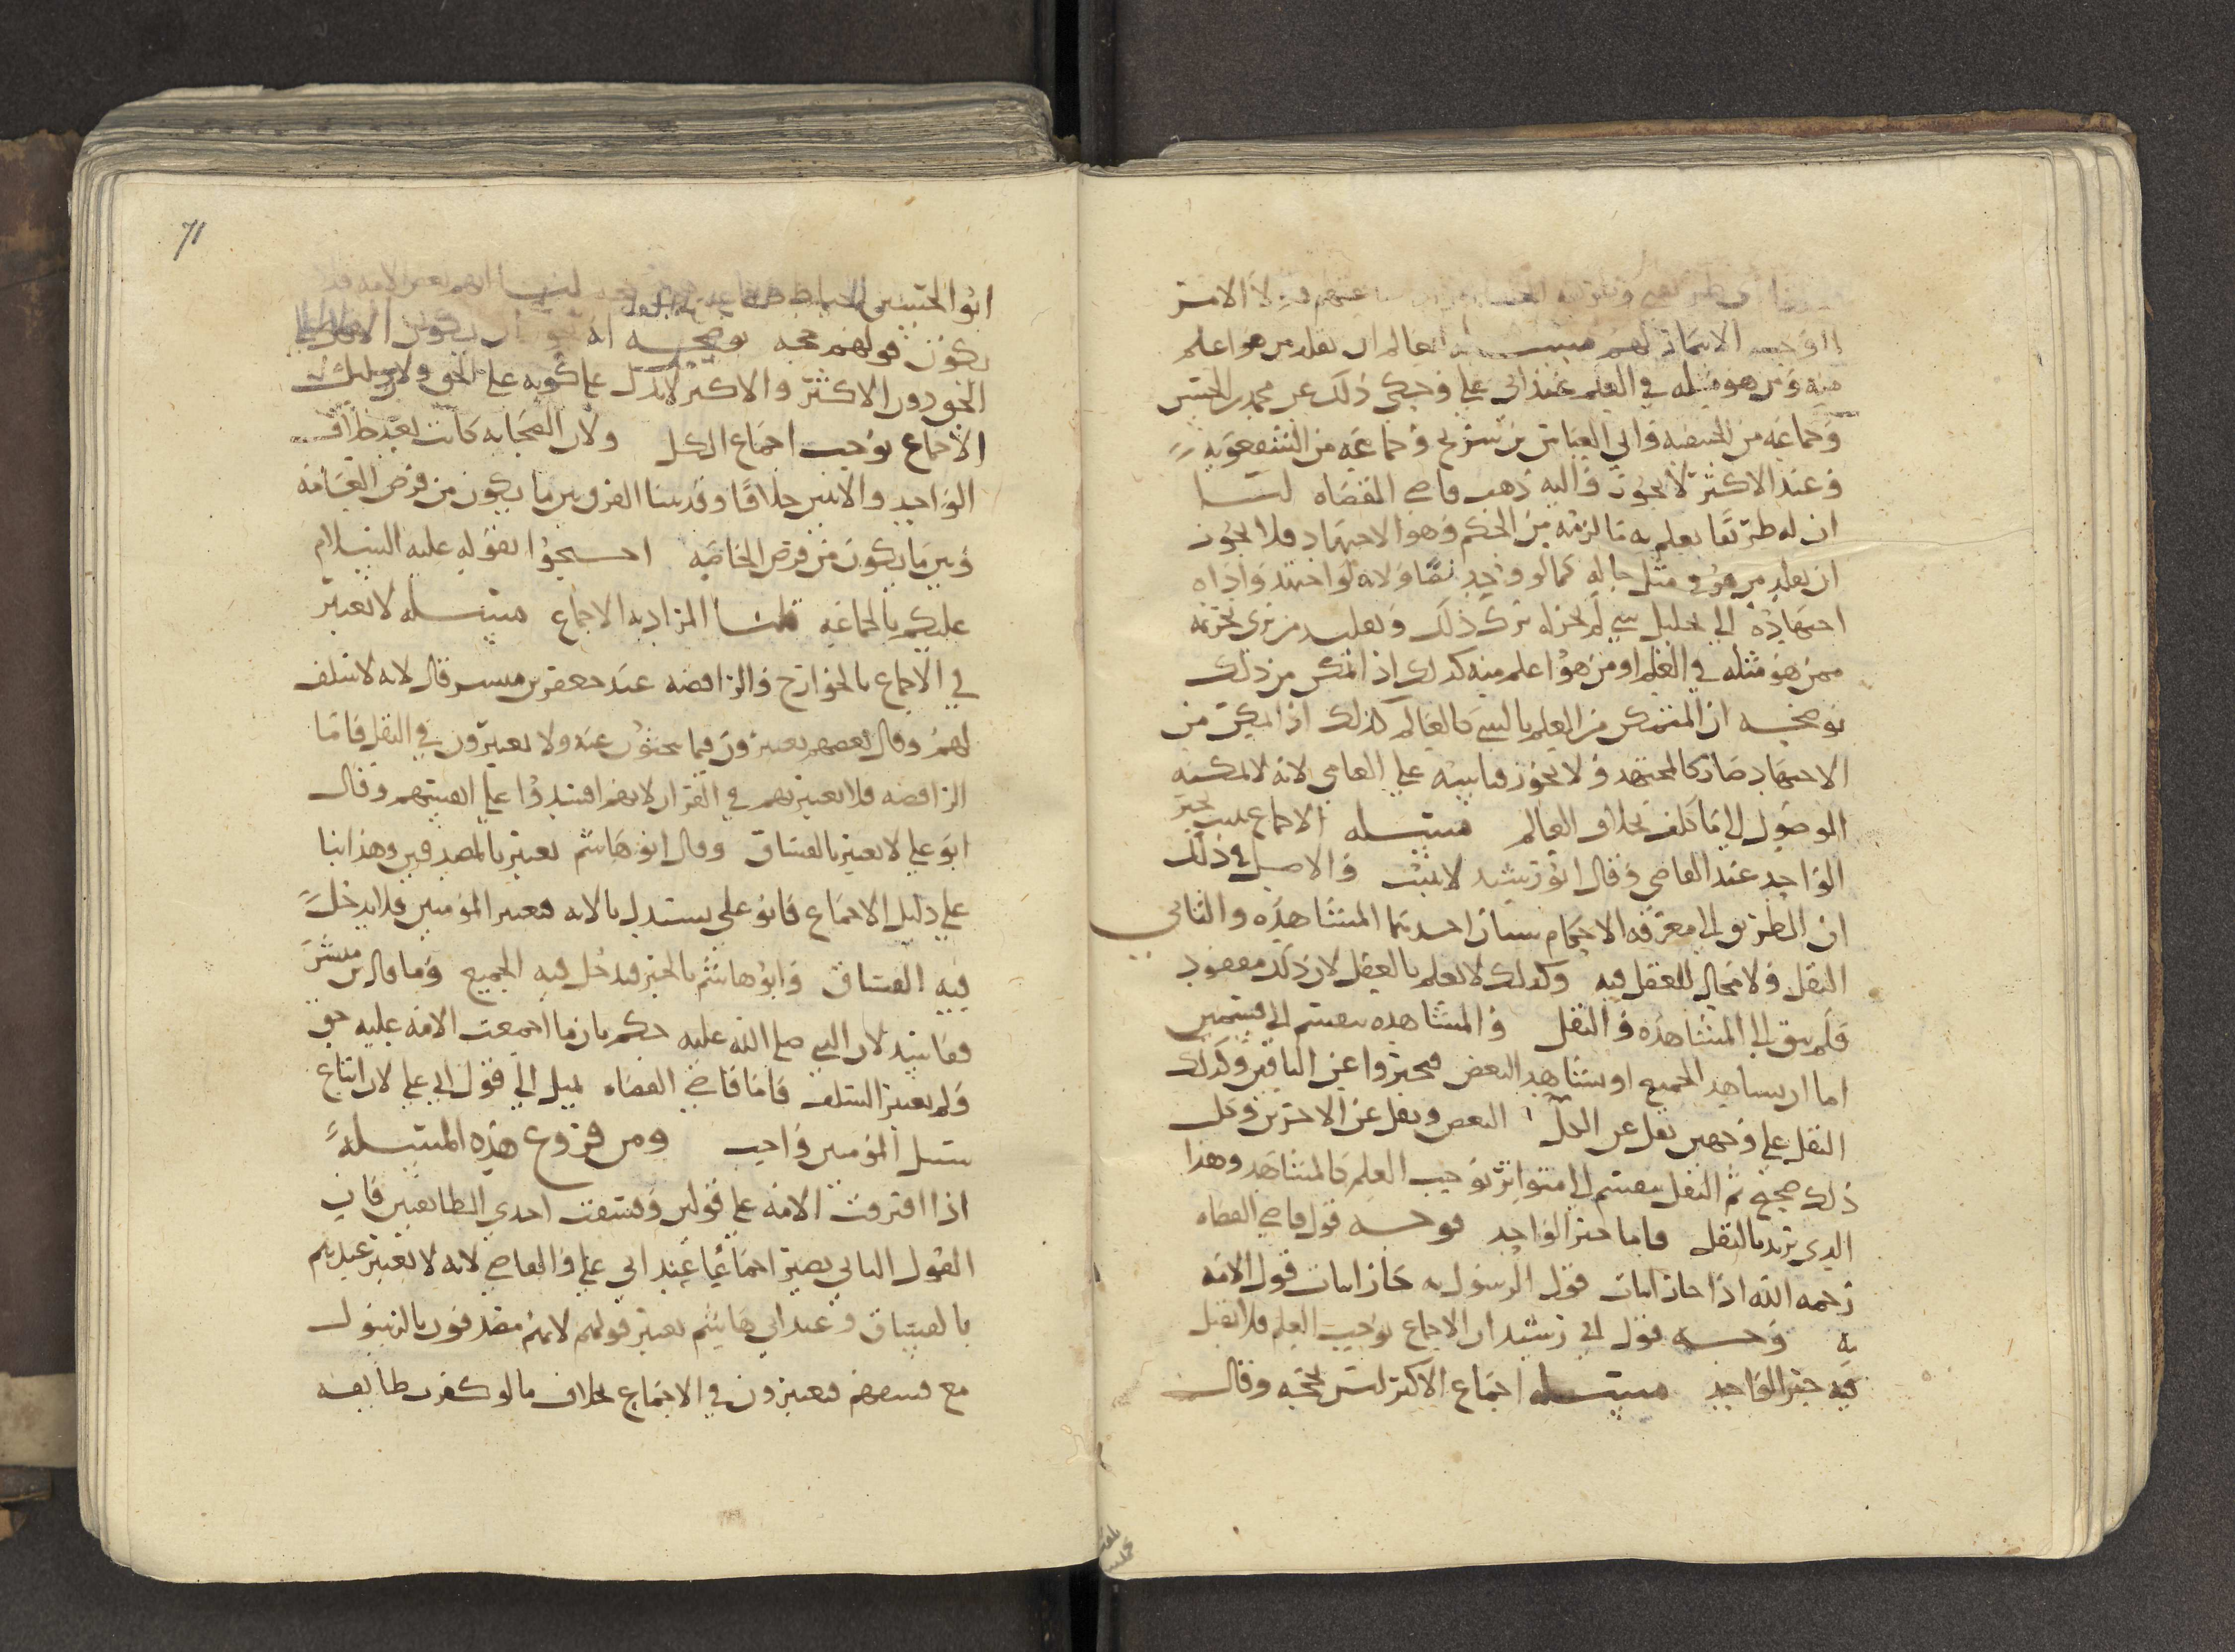 الامر
الوجب الانجاز لهم مسله العالم ان يقلد من هو اعلم
منه ومن هو مثله في العلم عند ابي علي وحكي ذلك عن محمد بن الحسن
وجماعه من الحنفيه وابي العباس بن سريج وجماعه من الشفعويه
وعند الاكثر لا يجوز واليه ذهب قاضي القضاه لنا
ان له طريقا يعلم به ما لزمه من الحكم وهو الاجتهاد فلا يجوز
ان يقلد من هو في مثل حاله كما لو وجد نصا ولانه لو اجتهد واداه
اجتهاده الي تحليل شي لم يجز له ترك ذلك وتقليد من يري تحريمه
ممن هو مثله في العلم او من هو اعلم منه كذلك اذا تمكن من ذلك
توضحه ان المتمكن من العلم بالشي كالعالم كذلك اذا تمكن من
الاجتهاد صار كالمجتهد ولا يجوز قياسه علي العامي لانه لا يمكنه
الوصول الي ما كلف بخلاف العالم مسله الاجماع يثبت بخبر
الواحد عند القاضي وقال ابو رشيد لا يثبت والاصل في ذلك
ان الطريق الي معرفه الاحكام سيان احدهما المشاهده والثاني
النقل ولا مجال للعقل فيه وكذلك لا يعلم بالعقل لان ذلك مفقود
فلم يبق الا المشاهده والنقل والمشاهده ينقسم الي قسمين
اما ان يشاهد الجميع او يشاهد البعض فيخبروا عن الباقين وكذلك
النقل علي وجهين نقل عن الكل البعض ونقل عن الاخرين وكل
ذلك صحيح ثم النقل ينقسم الي متواتر يوجب العلم كالمشاهد وهذا
الذي نريد بالنقل فاما خبر الواحد فوجه قول قاضي القضاه
رحمه الله اذا جاز اثبات قول الرسول به جاز اثبات قول الامه
به وجه قول ابي رشيد ان الاجماع يوجب العلم فلا يقبل
فيه خبر الواحد مسله اجماع الاكثر ليس بحجه وقال
71
ابو الحسين الخياط لنا انهم بعض الامه فلا
يكون قولهم حجه توضحه انه يجوز ان يكون
الحق دون الاكثر والاكثر لا يدل علي كونه علي الحق ولان دليل
الاجماع يوجب اجماع الكل ولان الصحابه كانت تعد خلاف
الواحد والاثنين خلافا وقد بينا الفرق بين ما يكون من فرض العامه
وبين ما يكون من فرض الخاصه احتجوا بقوله عليه السلام
عليكم بالجماعه قلنا المراد به الاجماع مسله لا نعتبر
في الاجماع بالخوارج والرافضه عند جعفر بن مبشر قال لانه لا سلف
لهم وقال بعضهم يعتبرون فيما يبحثون عنه ولا يعتبرون في النقل فاما
الرافضه فلا نعتبر بهم في القران لانهم افسدوا علي انفسهم وقال
ابو علي لا يعتبر بالفساق وقال ابو هاشم نعتبر بالمصدقين وهذا بنا
علي دليل الاجماع فابو علي يستدل بالايه فيعتبر المومنين فلا يدخل
فيه الفساق وابو هاشم بالخبر فيدخل فيه الجميع وما قال بن مبشر
ففاسد لان النبي صلي الله عليه حكم بان ما اجمعت الامه عليه حق
ولم يعتبر السلف فاما قاضي القضاه يميل الي قول ابي علي لان اتباع
سبيل المومنين واجب ومن فروع هذه المسله
اذا افترقت الامه علي قولين وفسقت احدي الطايفتين فان
القول الثاني يصير اجماعا عند ابي علي والقاضي لانه لا نعتبر عندهم
بالفساق وعند ابي هاشم يعتبر قولهم لانهم مصدقون بالرسول
مع فسقهم فيعتبرون في الاجماع بخلاف ما لو كفرت طايفه